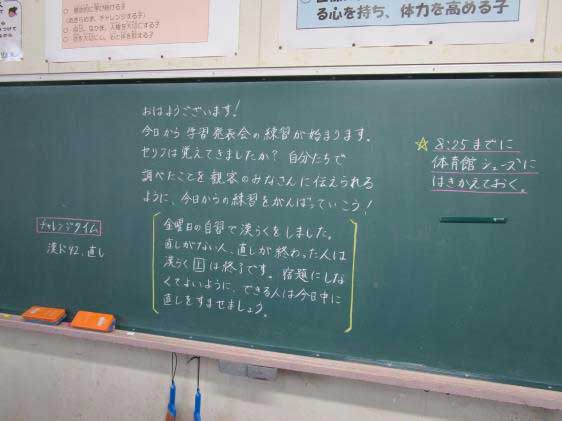 る心を持ち、体力を高める子
おはようございます!
今日から学習発表会の練習が始まります。
セリフは覚えてきましたか？自分たちで
調べたことを観客のみなさんに伝えられる
ように、今日からの練習をがんばっていこう!
金曜日の自習で漢らくをしました。
直しがない人、直しが終わった人は
漢らく 1 は終了です。宿題にしな
くてよいように、できる人は今日中に
直しをすませましょう。
☆ 8:25までに
体育館シューズに
はきかえておく。
チャレンジタイム
漢ド42、直し